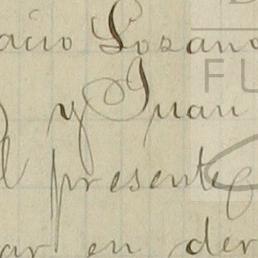 acio Lozano
y Juan
l presente
ar en der